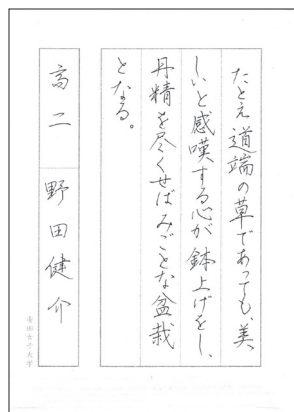 たとえ道端の草であっても、美
しいと感嘆する心が鉢上げをし、
丹精を尽くせばみごとな盆栽
となる。
高二　野田健介